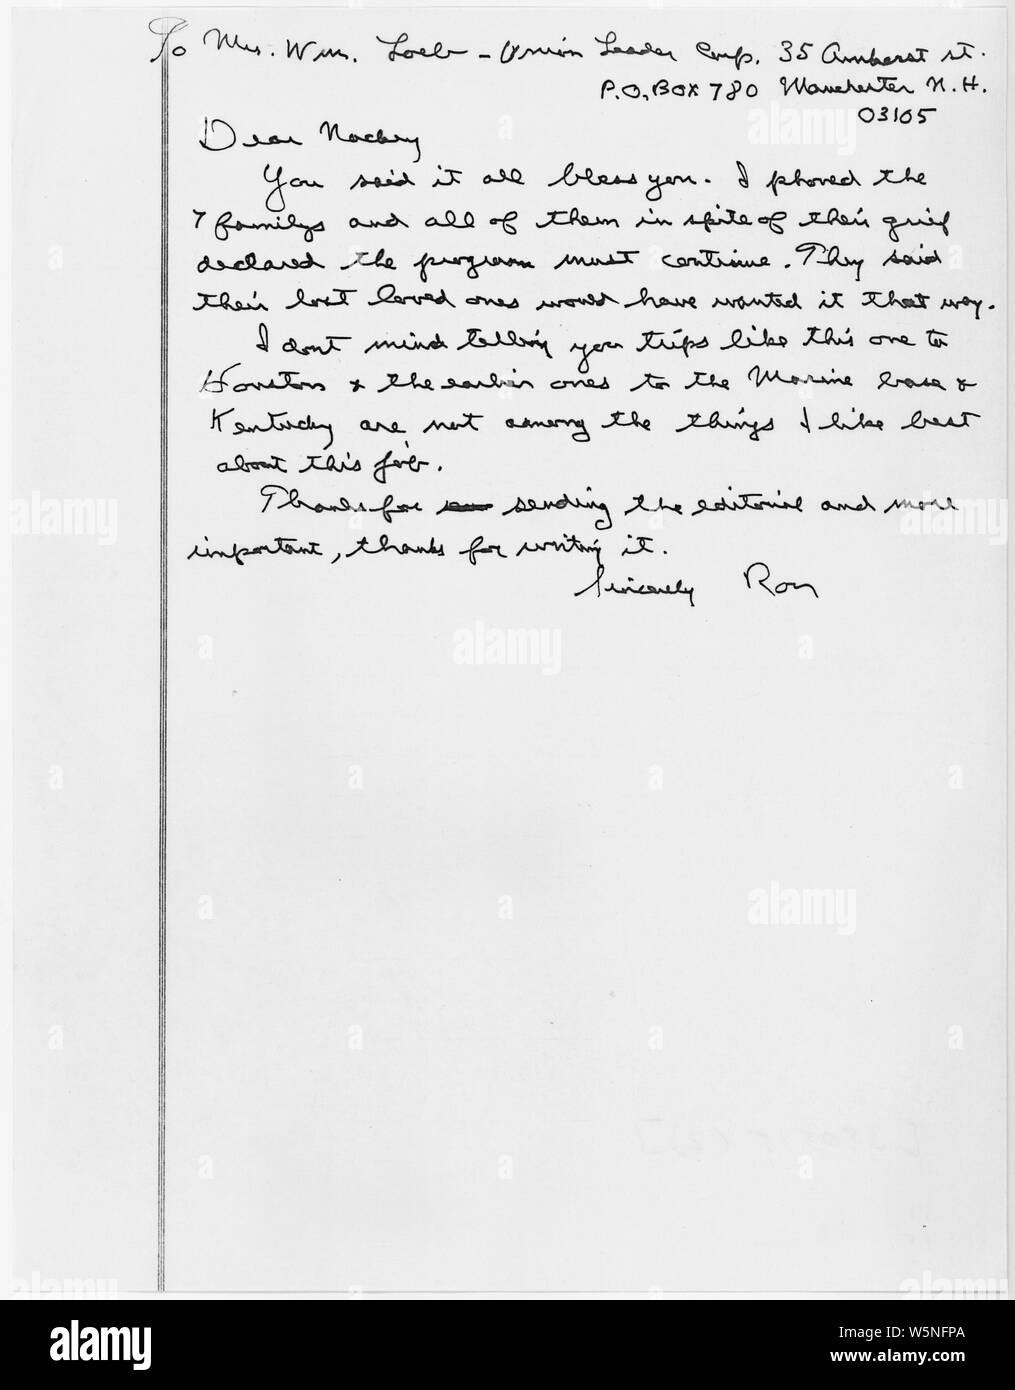 To Mrs. Wm. Loeb - Union Leader Corp. 35 Amherst St.
P.O. Box 780 Manchester N.H.
03105
Dear Nackey
You said it all bless you. I phoned the
7 familys and all of them in spite of their grief
declared the program must continue. They said
their lost loved ones would have wanted it that way.
I dont mind telling you trips like this one to
Houston & the earlier ones to the Marine base &
Kentucky are not among the things I like best
about this job.
Thanks for sending the editorial and more
important, thanks for writing it.
Sincerely Ron
alamy
alamy
alamy
alamy
alamy
alamy
alamy
alamy
Image ID: W5NFPA
www.alamy.com